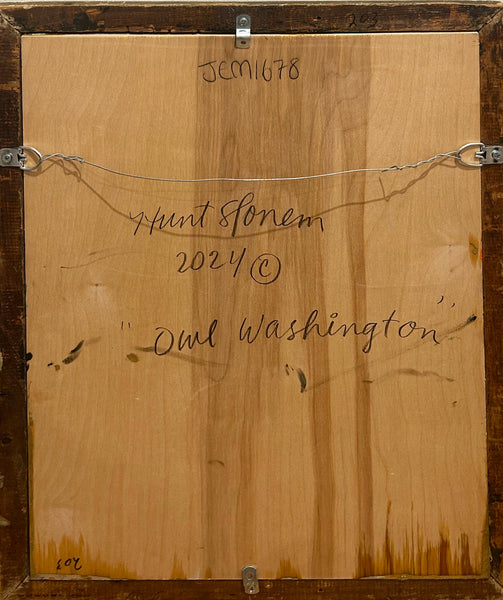 203
JCM1678
Hunt Slonem
2024 ©
"Owl Washington"
203